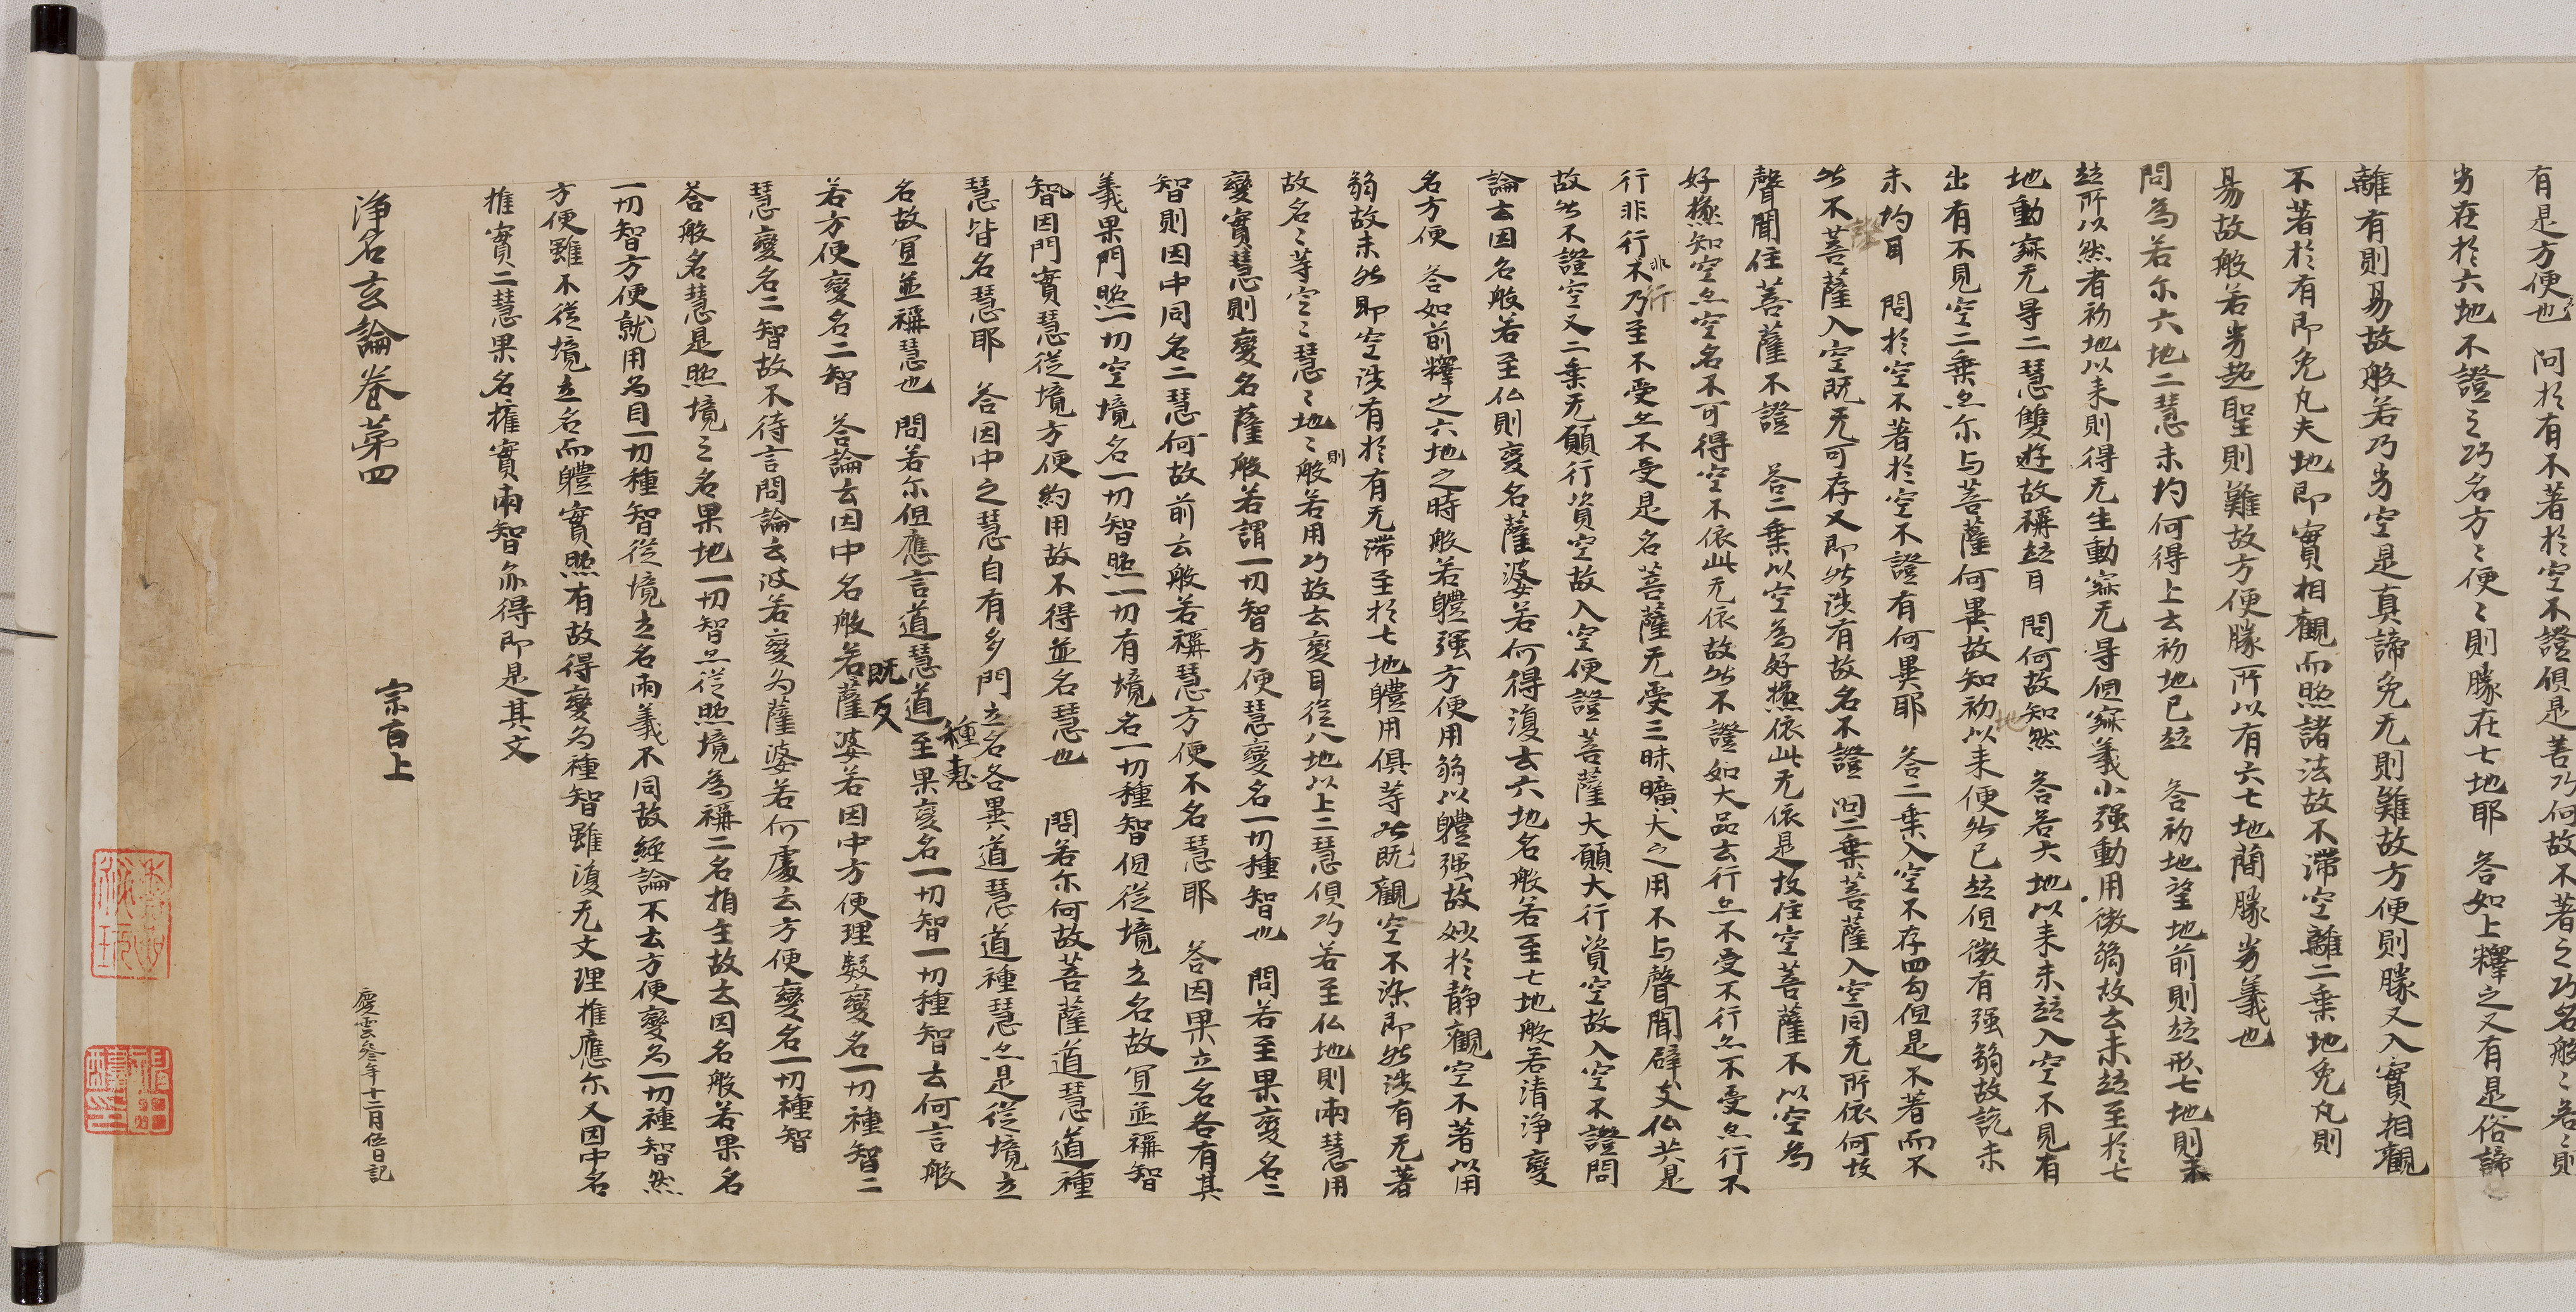 有是方便也 问於有不著於空不證俱是善巧何故不著之巧名般〻若〻則
劣在於六地不證之巧名方〻便〻則勝在七地耶 答如上釋之又有是俗諦
離有則易故般若巧劣空是真諦免无則難故方便則勝又入實相觀
不著於有即免凡夫地即實相觀而照諸法故不滞空離二乗地免凡則
易故般若劣超聖則難故方便勝所以有六七地蘭勝劣義也
問為若尓六地二慧未均何得上云初地已竝 答初地望地前則竝形七地則未
竝所以然者初地以来則得无生動寂无㝵但寂義小强動用微弱故云未竝至於七
地動寂无㝵二慧雙遊故稱竝耳 問何故知然 答若六地以来未竝入空不見有
出有不見空二乗亦尓与菩薩何異故知初地以来便能已竝但微有强弱故說未
未均耳 問於空不著於空不證有何異耶 答二乗入空不存四句但是不著而不
能不證菩薩入空既无可存又即能涉有故名不證 问二乗菩薩入空同无所依何故
聲聞住菩薩不證 答二乗以空為好㯹依此无依是故住空菩薩不以空為
好㯹知空亦空名不可得空不依此无依故能不證如大品云行亦不受不行亦不受亦行不
行非行非不行乃至不受亦不受是名菩薩无受三昧曠大之用不与聲聞辟支仏共是
故能不證空又二乗无願行資空故入空便證菩薩大願大行資空故入空不證問
論云因名般若至仏則變名薩婆若何得復云六地名般若至七地般若清淨變
名方便 答如前釋之六地之時般若軆强方便用弱以軆强故妙於静觀空不著以用
弱故未能即空涉有於有无滞至於七地軆用俱等能既觀空不染即能涉有无著
故名〻等空〻慧〻地〻則般若用巧故去變耳從八地以上二慧俱巧若至仏地則兩慧用
變實慧則變名薩般若謂一切智方便慧變名一切種智也 問若至果變名二
智則因中同名二慧何故前云般若稱慧方便不名慧耶 答因果立名各有其
義果門照一切空境名一切智照一切有境名一切種智但從境立名故冝並稱智
智因門實慧從境方便約用故不得並名慧也 問若尓何故菩薩道慧道種
慧皆名慧耶 答因中之慧自有多門立名各異道慧道種慧亦是從境立
名故冝並稱慧也 問若尓但應言道慧道種惠至果變名一切智一切種智云何言般
若方便變名二智 答論云因中名般若既反薩婆若因中方便理數變名一切種智二
慧變名二智故不待言問論云波若變為薩婆若何處云方便變名一切種智
答般名慧是照境之名果地一切智亦從照境為稱二名相主故云因名般若果名
一切智方便就用為目一切種智從境立名兩義不同故經論不云方便變為一切種智然
方便雖不從境立名而軆實照有故得變為種智雖復无文理推應尓又因中名
推實二慧果名權實兩智亦得即是其文
浄名玄論卷苐四
宗旨上
慶雲叁年十二月伍日記